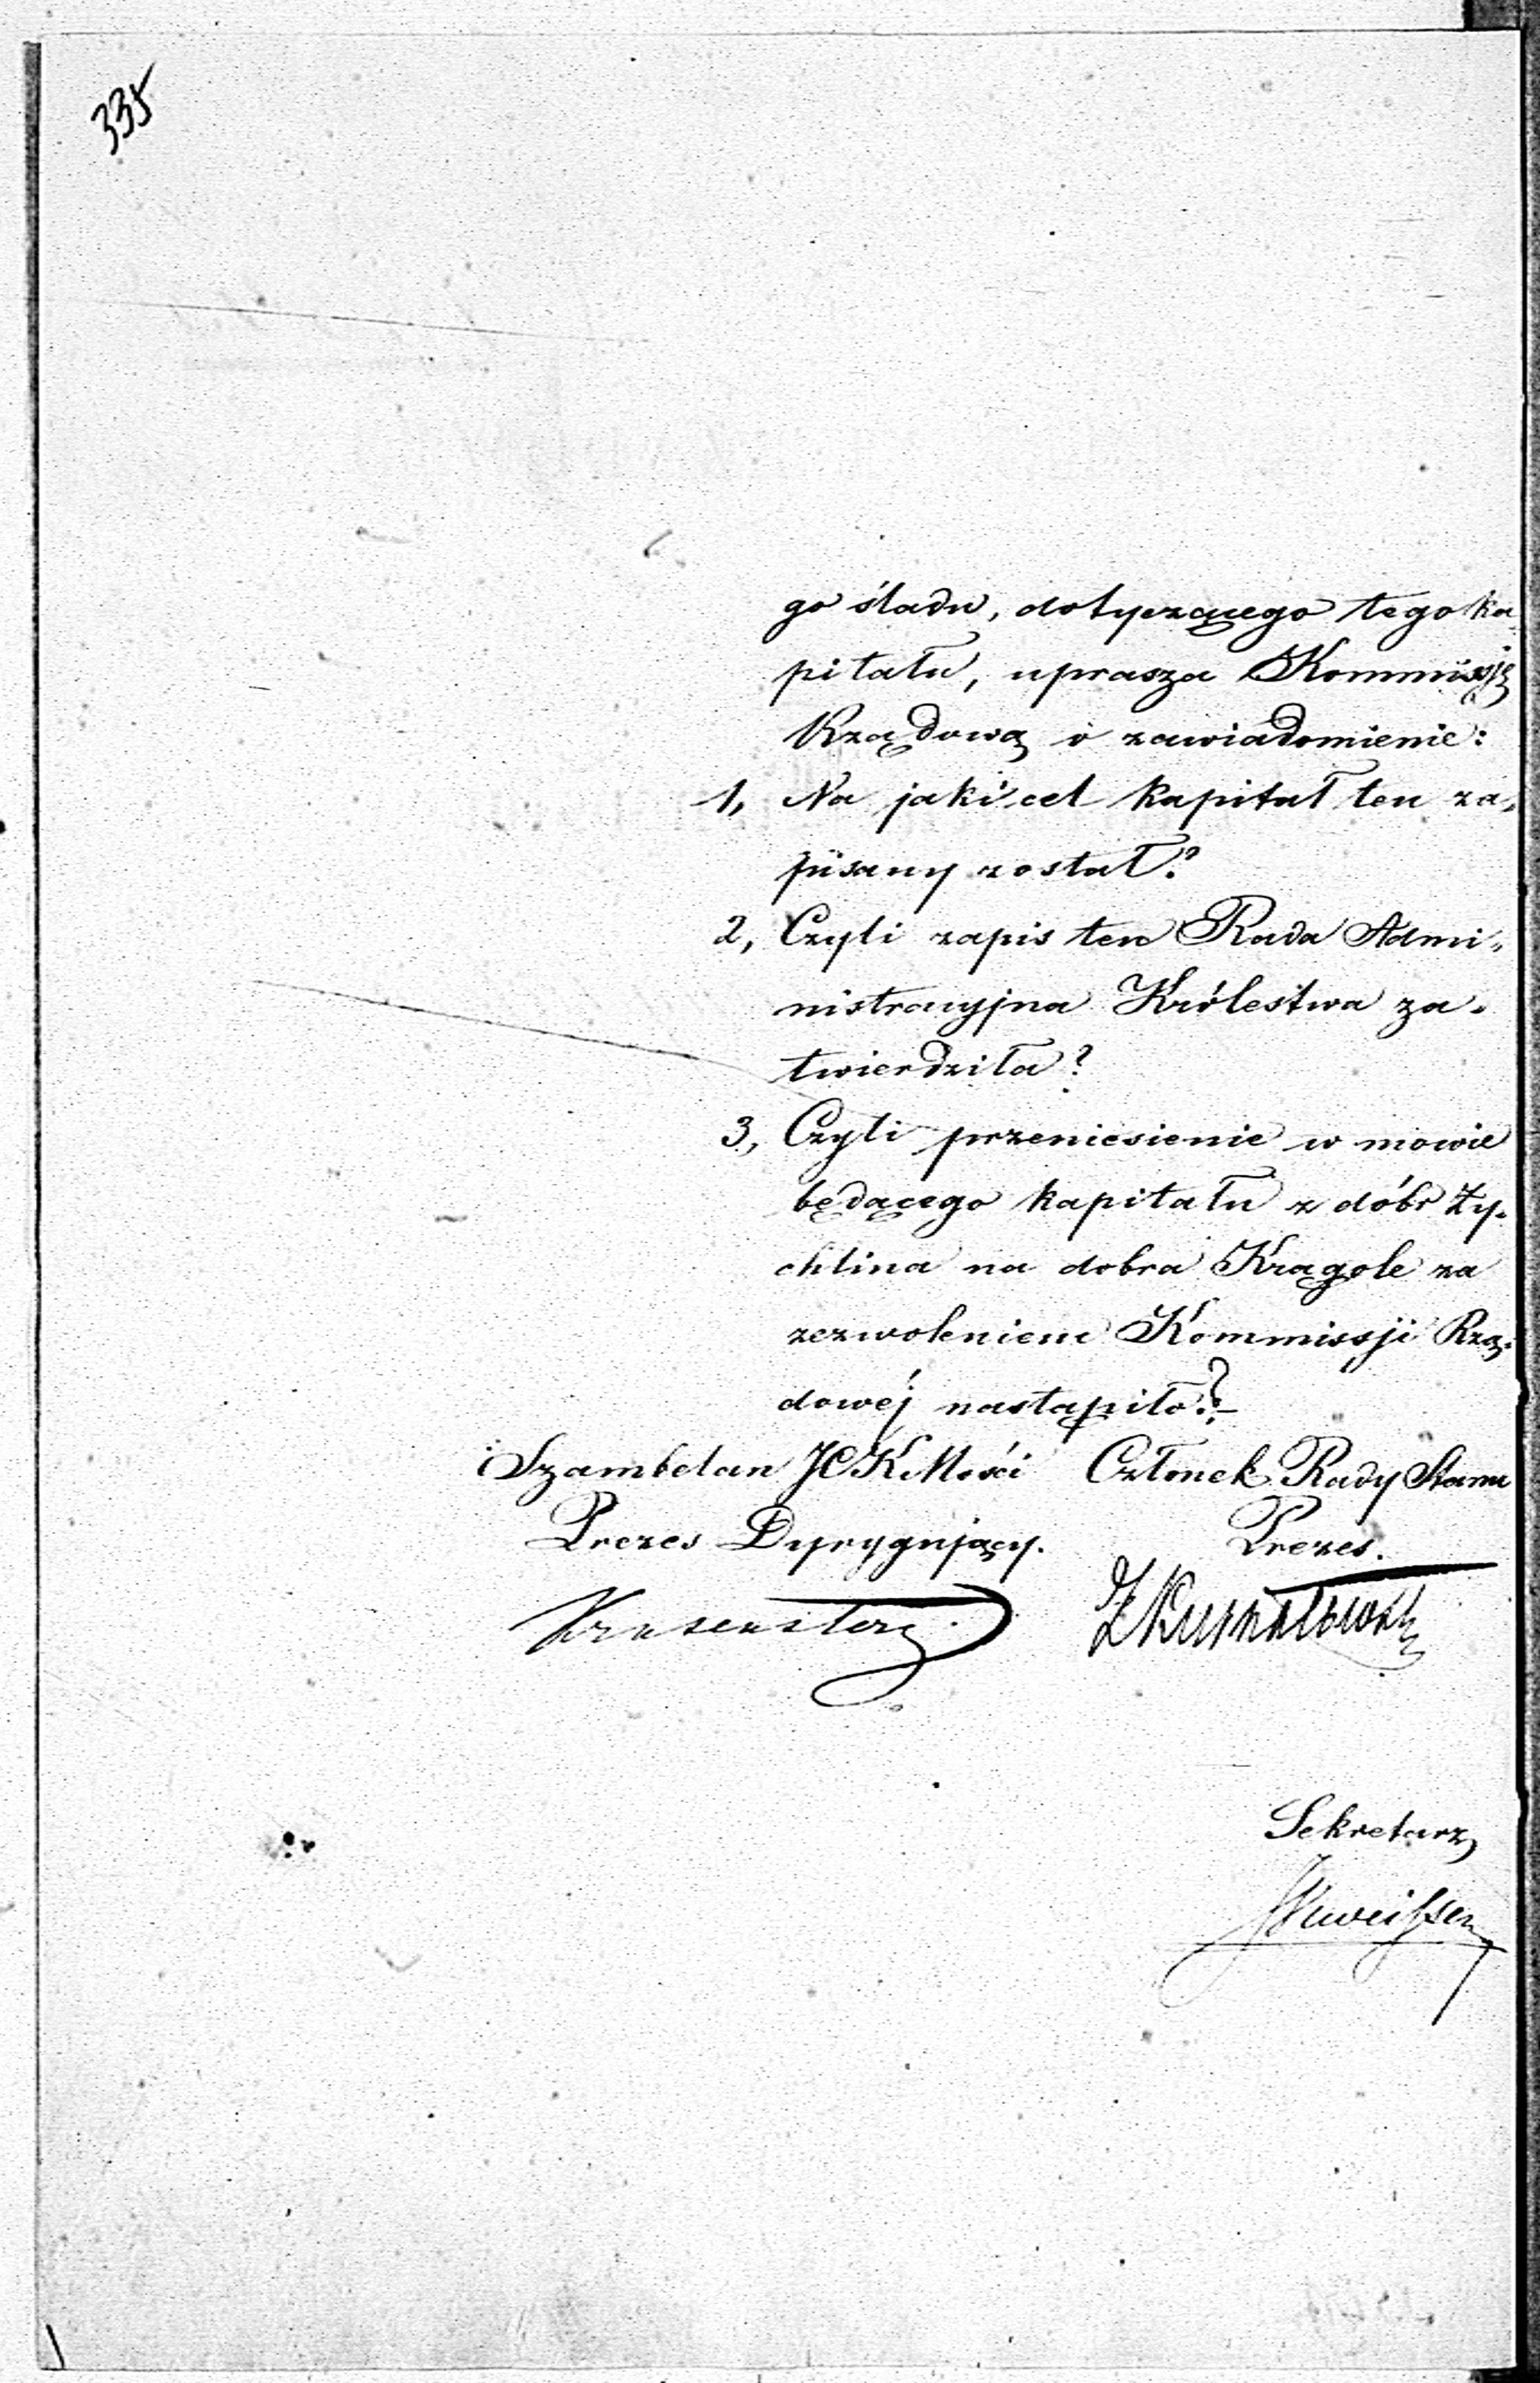 335
go śladu, dotyczącego tego ka„
pitału, uprasza Kommissję
Rządową o zawiadomienie:
1, Na jaki cel kapitał ten za„
pisany został?
2, Czyli zapis ten Rada Admi„
nistracyjna Królestwa za„
twierdziła?
3, Czyli przeniesienie w mowie
będącego kapitału z dóbr Ży„
chlina na dobra Krągole za
zezwoleniem Kommissji Rzą„
dowéj nastąpiło?
Szambelan JCKMości Członek Rady Stanu
Prezes Dyrygujący. Prezes.
Krusenstern
Sekretarz